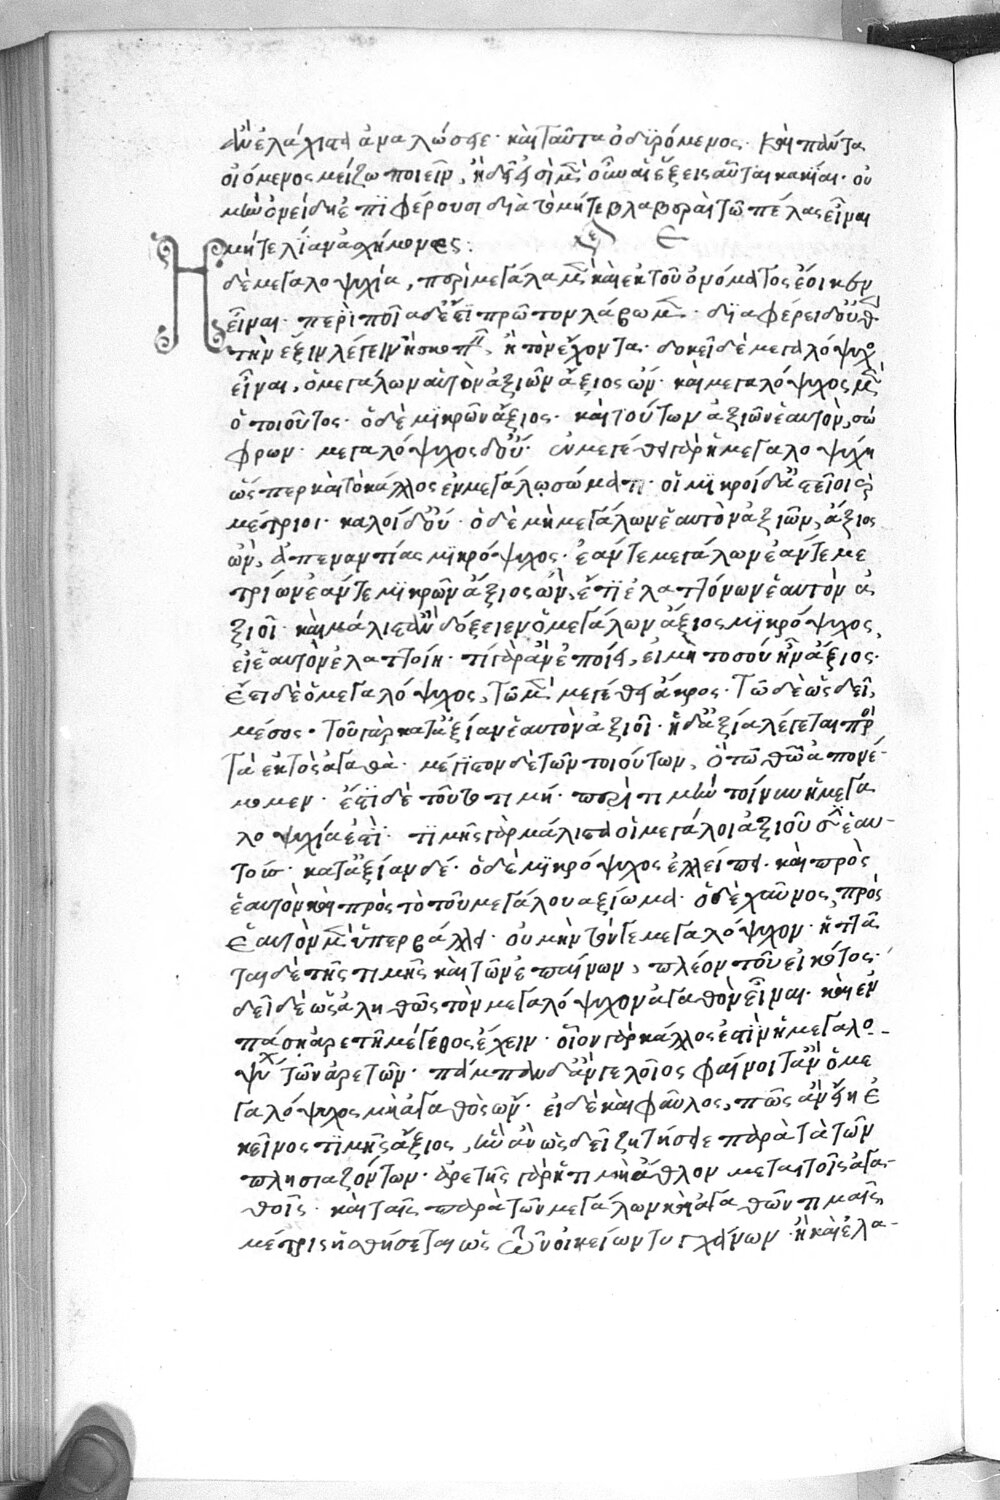 ἂν ἐλάχιστα ἀναλώσῃ· καὶ ταῦτα ὀδυρόμενος· καὶ πάντα
οἰόμενος μείζω ποιεῖν, ἢ δεῖ· εἰσὶ μὲν οὖν αἱ ἕξεις αὗται κακίαι· οὐ
μὴν ὀνείδη ἐπιφέρουσι διὰ τὸ μήτε βλαβερὰ τῷ πέλας εἶναι
μήτε λίαν ἀσχήμονες:
Η δὲ μεγαλοψυχία, περὶ μεγάλα μὲν καὶ ἐκ τοῦ ὀνόματος ἔοικεν
εἶναι· περὶ ποῖα δέ ἐστι πρῶτον λάβωμεν· διαφέρει δ' οὐθὲν
τὴν ἕξιν λέγειν ἢ σκοπεῖν, ἢ τὸν ἔχοντα· δοκεῖ δὲ μεγαλόψυχος
εἶναι, ὁ μεγάλων αὑτὸν ἀξιῶν ἄξιος ὤν· καὶ μεγαλόψυχος μὲν
ὁ τοιοῦτος· ὁ δὲ μικρῶν ἄξιος· καὶ τούτων ἀξιῶν ἑαυτὸν, σώ
φρων· μεγαλόψυχος δ' οὔ· ἐν μεγέθει γὰρ ἡ μεγαλοψυχία
ὥσπερ καὶ τὸ κάλλος ἐν μεγάλῳ σώματι· οἱ μικροὶ δ' ἀστεῖοι καὶ
μέτριοι· καλοὶ δ' οὔ· ὁ δὲ μὴ μεγάλων ἑαυτὸν ἀξιῶν, ἄξιος
ὢν, ἀπεναντίας μικρόψυχος· ἐάν τε μεγάλων ἐάν τε με
τρίων ἐάν τε μικρῶν ἄξιος ὢν, ἔτι ἐλαττόνων ἑαυτὸν ἀ
ξιοῖ· καὶ μάλιστα ἂν δόξειεν ὁ μεγάλων ἄξιος μικρόψυχος,
εἰ ἑαυτὸν ἐλαττοίη· τί γὰρ ἂν ἐποίει, εἰ μὴ τοσούτων ἦν ἄξιος·
Ἔστι δὲ ὁ μεγαλόψυχος, τῷ μὲν μεγέθει ἄκρος· τῷ δὲ ὡς δεῖ,
μέσος· τοῦ γὰρ κατ' ἀξίαν ἑαυτὸν ἀξιοῖ· ἡ δ' ἀξία λέγεται πρὸς
τὰ ἐκτὸς ἀγαθά· μέγιστον δὲ τῶν τοιούτων, ὃ τῷ θεῷ ἀπονέ-
μομεν· ἔστι δὲ τοῦτο τιμή· περὶ τιμὴν τοίνυν ἡ μεγα
λοψυχία ἐστί· τιμῆς γὰρ μάλιστα οἱ μεγάλοι ἀξιοῦσιν ἑαυ-
τούς· κατ' ἀξίαν δέ· ὁ δὲ μικρόψυχος ἐλλείπει· καὶ πρὸς
ἑαυτὸν καὶ πρὸς τὸ τοῦ μεγάλου ἀξίωμα· ὁ δὲ χαῦνος, πρὸς
ἑαυτὸν μὲν ὑπερβάλλει· οὐ μὴν τόν γε μεγαλόψυχον· ἡττᾶ
ται δὲ τῆς τιμῆς καὶ τῶν ἐπαίνων, πλέον τοῦ εἰκότος·
δεῖ δὲ ὡς ἀληθῶς τὸν μεγαλόψυχον ἀγαθὸν εἶναι· καὶ ἐν
πάσῃ ἀρετῇ μέγεθος ἔχειν· οἷον γὰρ κάλλος ἐστὶν ἡ μεγαλο-
ψυχία τῶν ἀρετῶν· πάμπαν δ' ἂν γελοῖος φαίνοιτ' ἂν ὁ με
γαλόψυχος μὴ ἀγαθὸς ὤν· εἰ δὲ καὶ φαῦλος, πῶς ἂν εἴη ἐ
κεῖνος τιμῆς ἄξιος, ἣν ἂν ὡς δεῖ ζητήσῃ παρὰ τὰ τῶν
πλησιαζόντων· ἀρετῆς γὰρ ἡ τιμὴ ἆθλον μετὰ τοῖς ἀγα-
θοῖς· καὶ ταῖς παρὰ τῶν μεγάλων καὶ ἀγαθῶν τιμαῖς,
μέτρις ἡσθήσεται ὡς ἂν οἰκείων τυγχάνων· ἢ καὶ ἐλα-